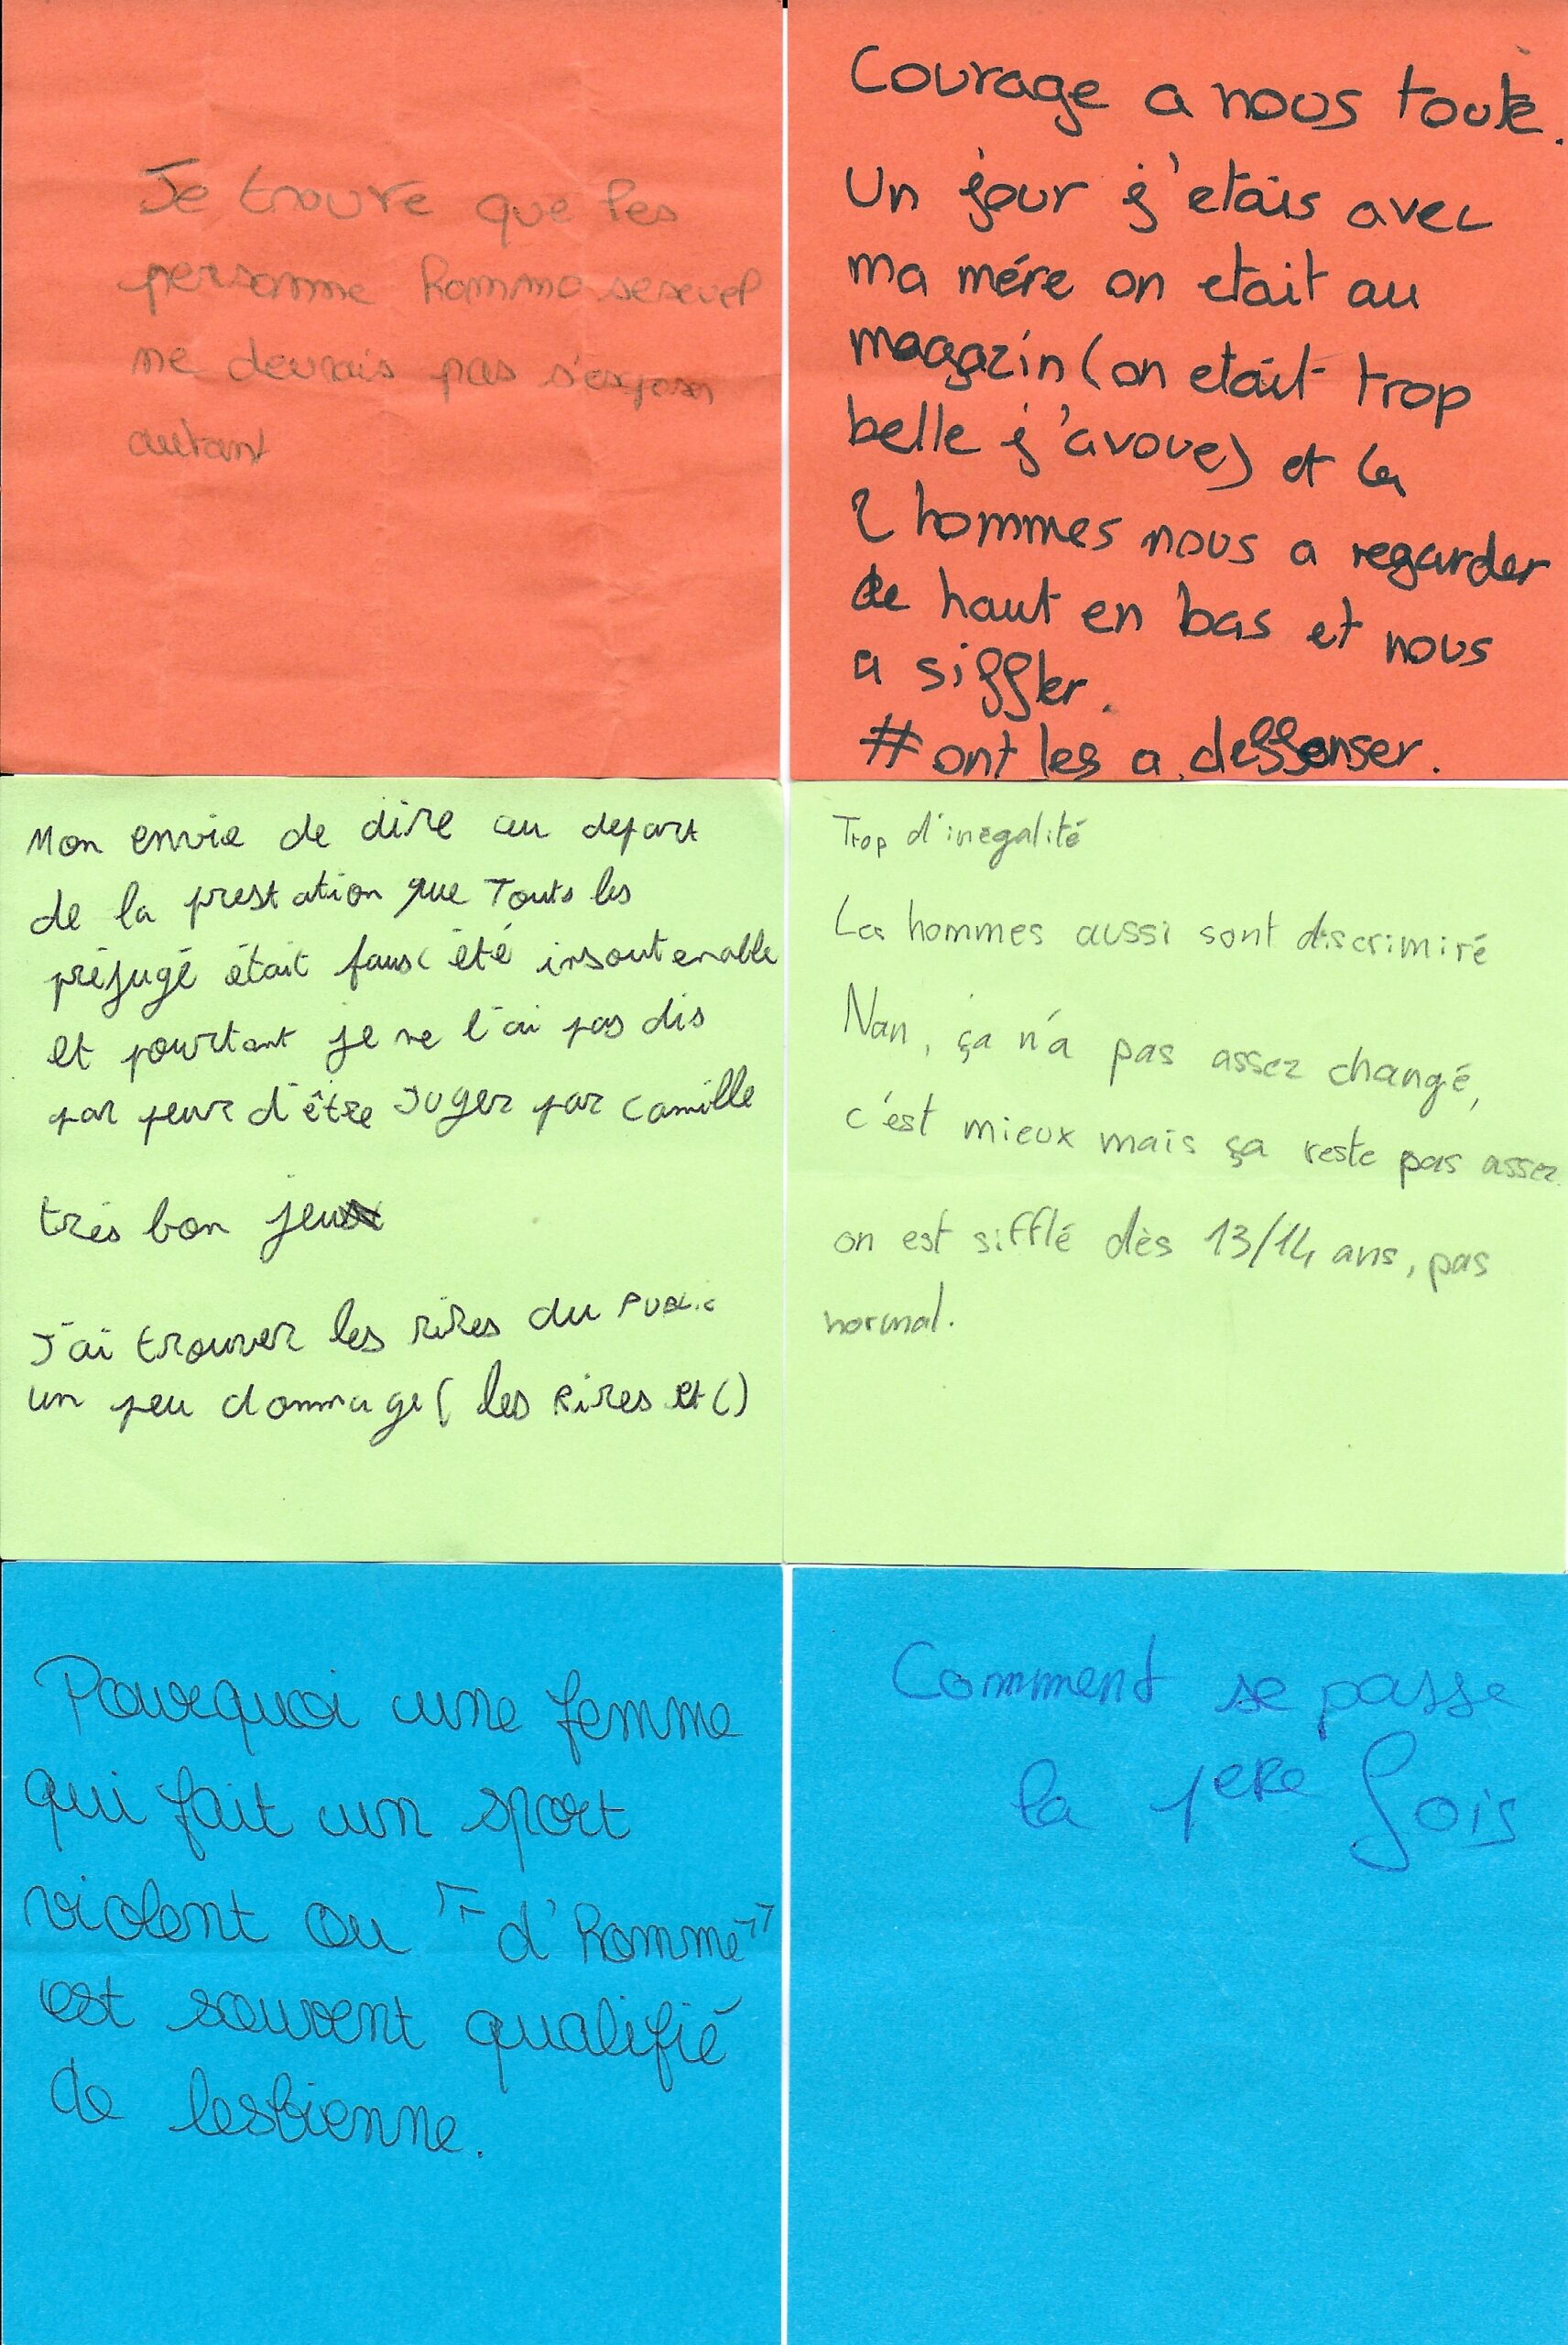 Je trouve que les
personne hommo sesexuel
ne devrais pas s'exposer
autant
Courage a nous toute.
Un jour j'etais avec
ma mére on etait au
magazin (on etait trop
belle j'avoue) et la
2 hommes nous a regarder
de haut en bas et nous
a siffler.
# ont les a deffonser.
Mon envie de dire au depart
de la prestation que Touts les
préjugé était faux été insoutenable
et pourtant je ne l'ai pas dis
par peur d'être Juger par Camille
trés bon jeu
J'ai trouver les rires du PUBLIC
un peu dommage ( les Rires et ()
Trop d'inégalité
Les hommes aussi sont discriminé
Nan, ça n'a pas assez changé,
c'est mieux mais ça reste pas assez
on est sifflé dès 13/14 ans, pas
normal.
Pourquoi une femme
qui fait un sport
violent ou "d'homme"
est souvent qualifié
de lesbienne.
Comment se passe
la 1ERE fois